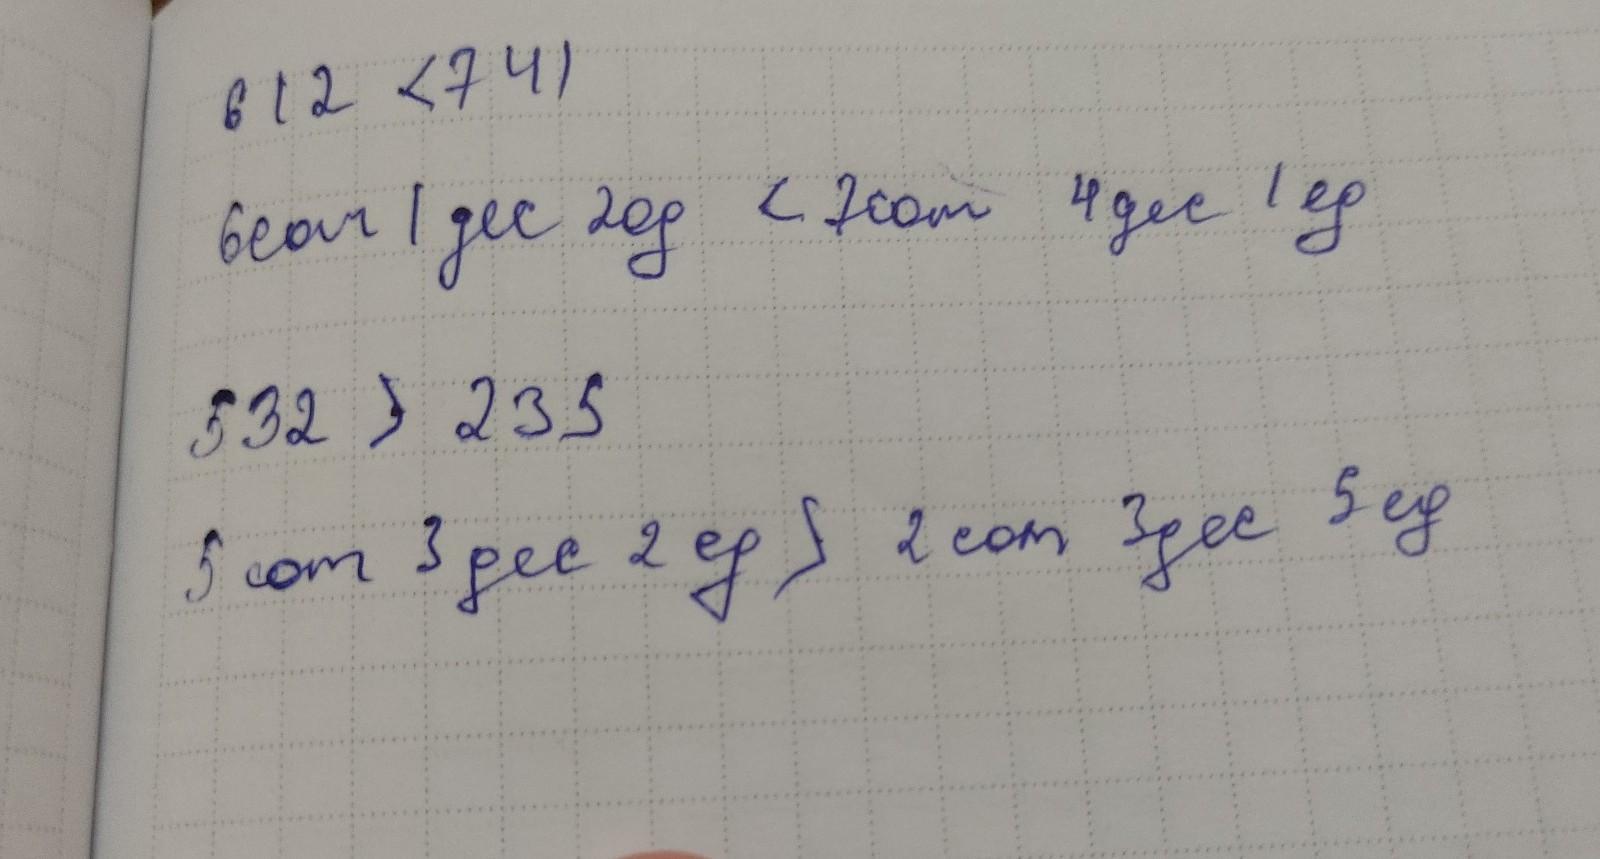 612 < 741
6 сот 1 дес 2 ед < 7 сот 4 дес 1 ед
532 > 235
5 сот 3 дес 2 ед > 2 сот 3 дес 5 ед